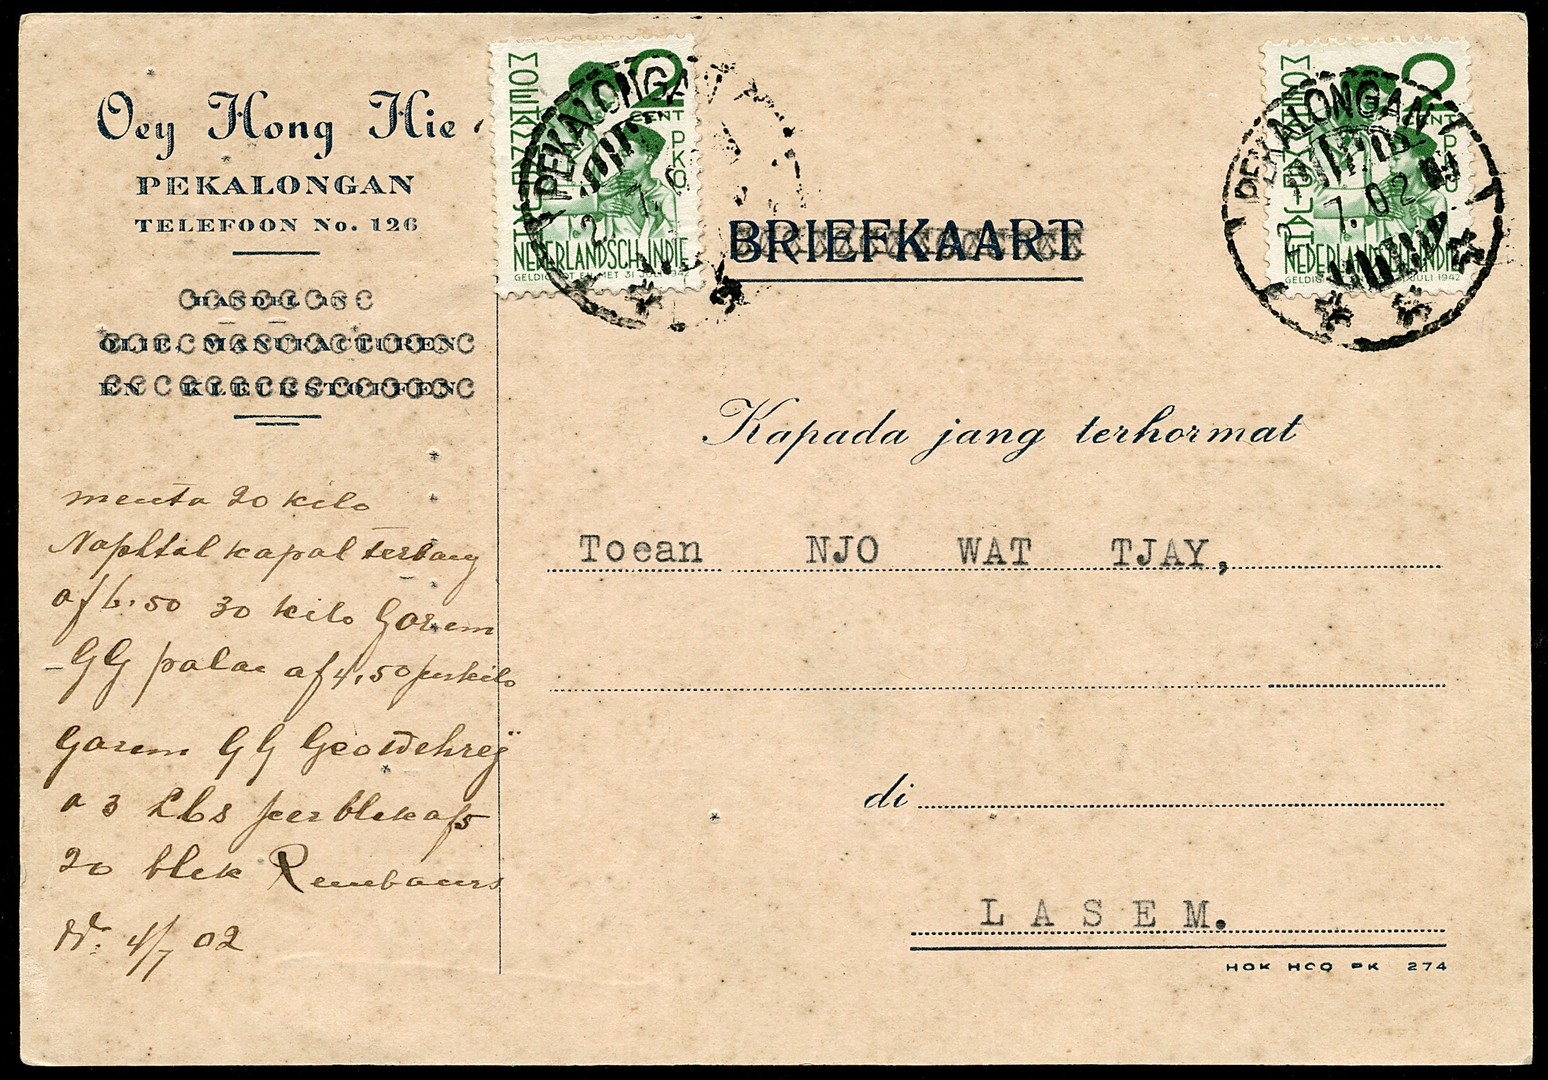 Oey Hong Hie
PEKALONGAN
TELEFOON No. 126
HANDEL IN:
OLIE, MANUFACTUREN
EN KLEURSTOFFEN
2
CENT
NEDERLANDSCH INDIE
GELDIG TOT EN MET 31 JULI 1942
PEKALONGAN
BRIEFKAART
2
CENT
NEDERLANDSCH INDIE
GELDIG JULI 1942
PEKALONGAN
7.02
Kapada jang terhormat
Toean NJO WAT TJAY,
di
LASEM.
HOK HOO PK 274
menta 20 kilo
Naphtal kapal terbang
af 6.50 30 kilo Garem
GG palae af 4,50 perkilo
Garem GG
a 3 Lbs per blek af 5
20 blek
4/7 02